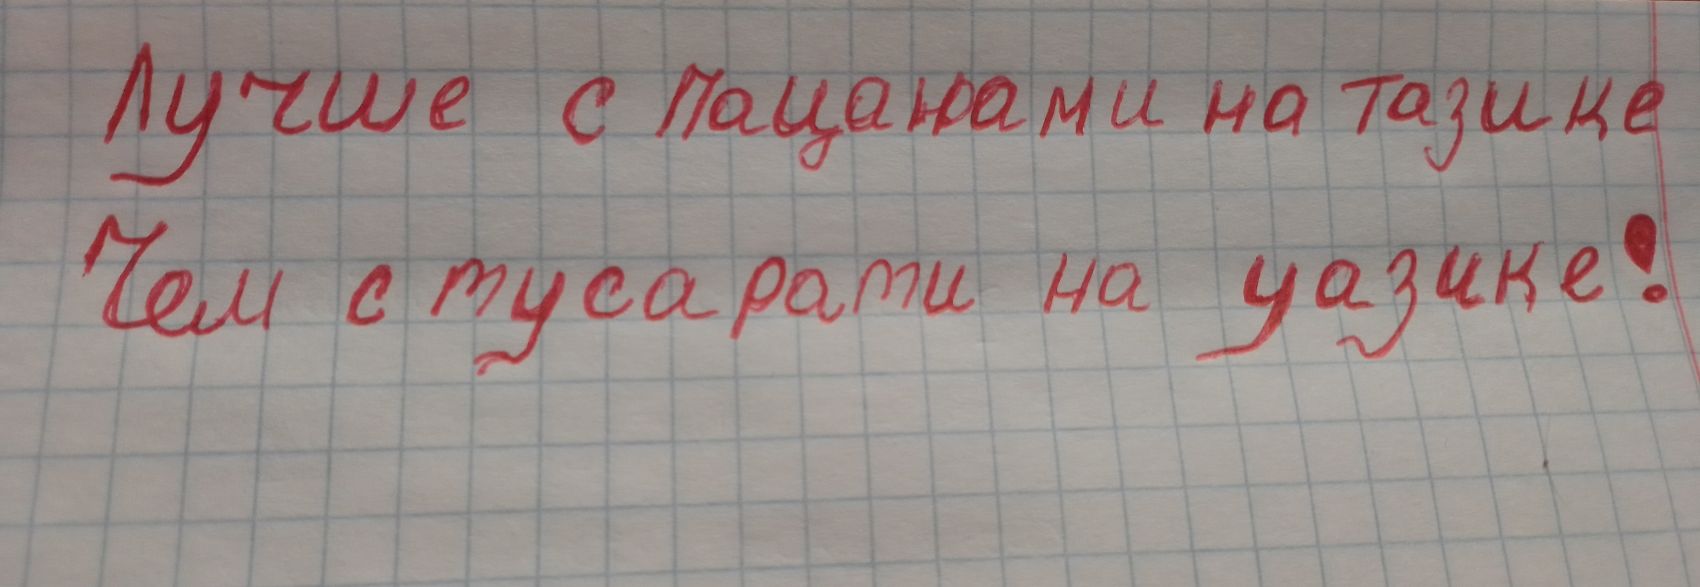 Лучше с пацанами на тазике
Чем с тусарами на уазике!